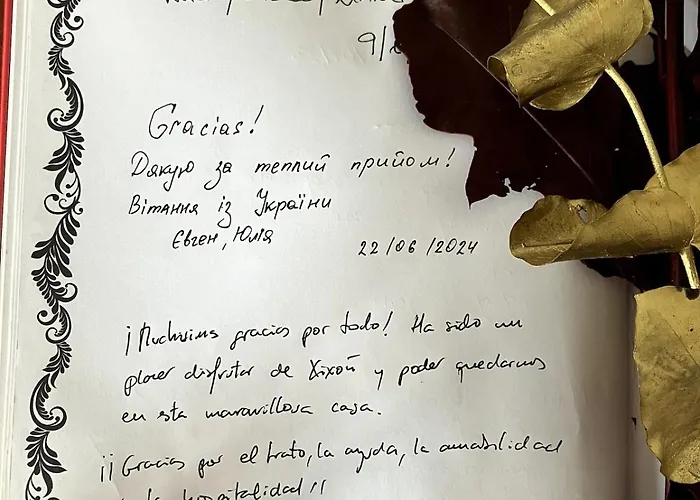 9/
Gracias!
Дякую за теплий прийом!
Вітання із України
Євген, Юлія
22/06/2024
¡Muchísimas gracias por todo! Ha sido un
placer disfrutar de Xixón y poder quedarnos
en esta maravillosa casa.
¡¡Gracias por el trato, la ayuda, la amabilidad
la hospitalidad!!